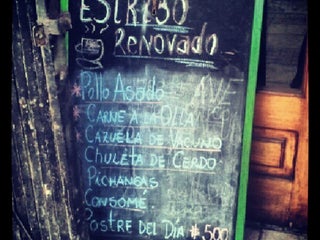 ESTRIBO
RENOVADO
* Pollo Asado
* CARNE A LA OLLA
* CAZUELA DE VACUNO
CHULETA DE CERDO
PICHANGAS
CONSOME
POSTRE DEL DÍA $500